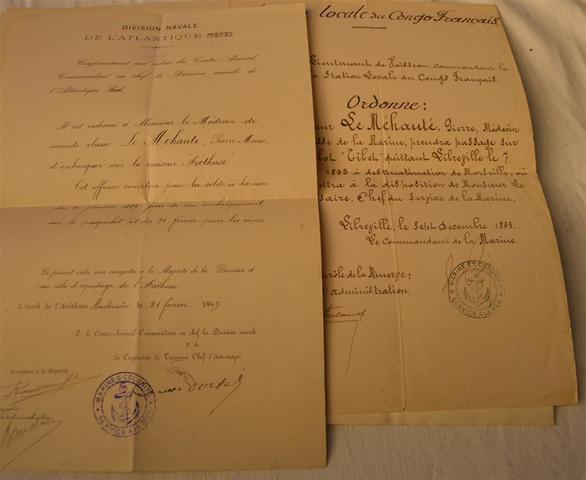 DIVISION NAVALE
DE L'ATLANTIQUE SUD
Conformément aux ordres du Contre Amiral
Commandant en chef la Division navale de
l'Atlantique Sud.
Il est ordonné à Monsieur le Médecin de
seconde classe Le Méhauté, Pierre Marie,
d'embarquer sur le croiseur
Cet officier comptera pour la solde à la mer
du 20 janvier 1889, jour de son embarquement
sur le paquebot et du 21 février pour les vivres.
Le présent ordre sera enregistré à la Majorité de la Division et
au rôle d'équipage de l'Aréthuse.
A bord de l'Aréthuse Montevideo le 21 février 1889
P. le Contre-Amiral Commandant en chef la Division navale
P. O.
Le Capitaine de Chef d'état-major
Enregistré à la Majorité
MARINE & COLONIES
SERVICE A LA MER
locale du Congo Français.
Lieutenant de Vaisseau Commandant la
Station Locale du Congo Français.
Ordonne:
eur Le Méhauté, Pierre, Médecin
sse de la Marine, prendra passage sur
bot "Tibet" quittant Libreville le 7
1893 à destination de Marseille, où
ettra à la disposition de Monsieur le
saire, Chef du Service de la Marine.
Libreville, le Sept Décembre 1893.
Le Commandant de la Marine.
MARINE ET COLONIES
SERVICE A LA MER
rôle de la Minerve:
administration.